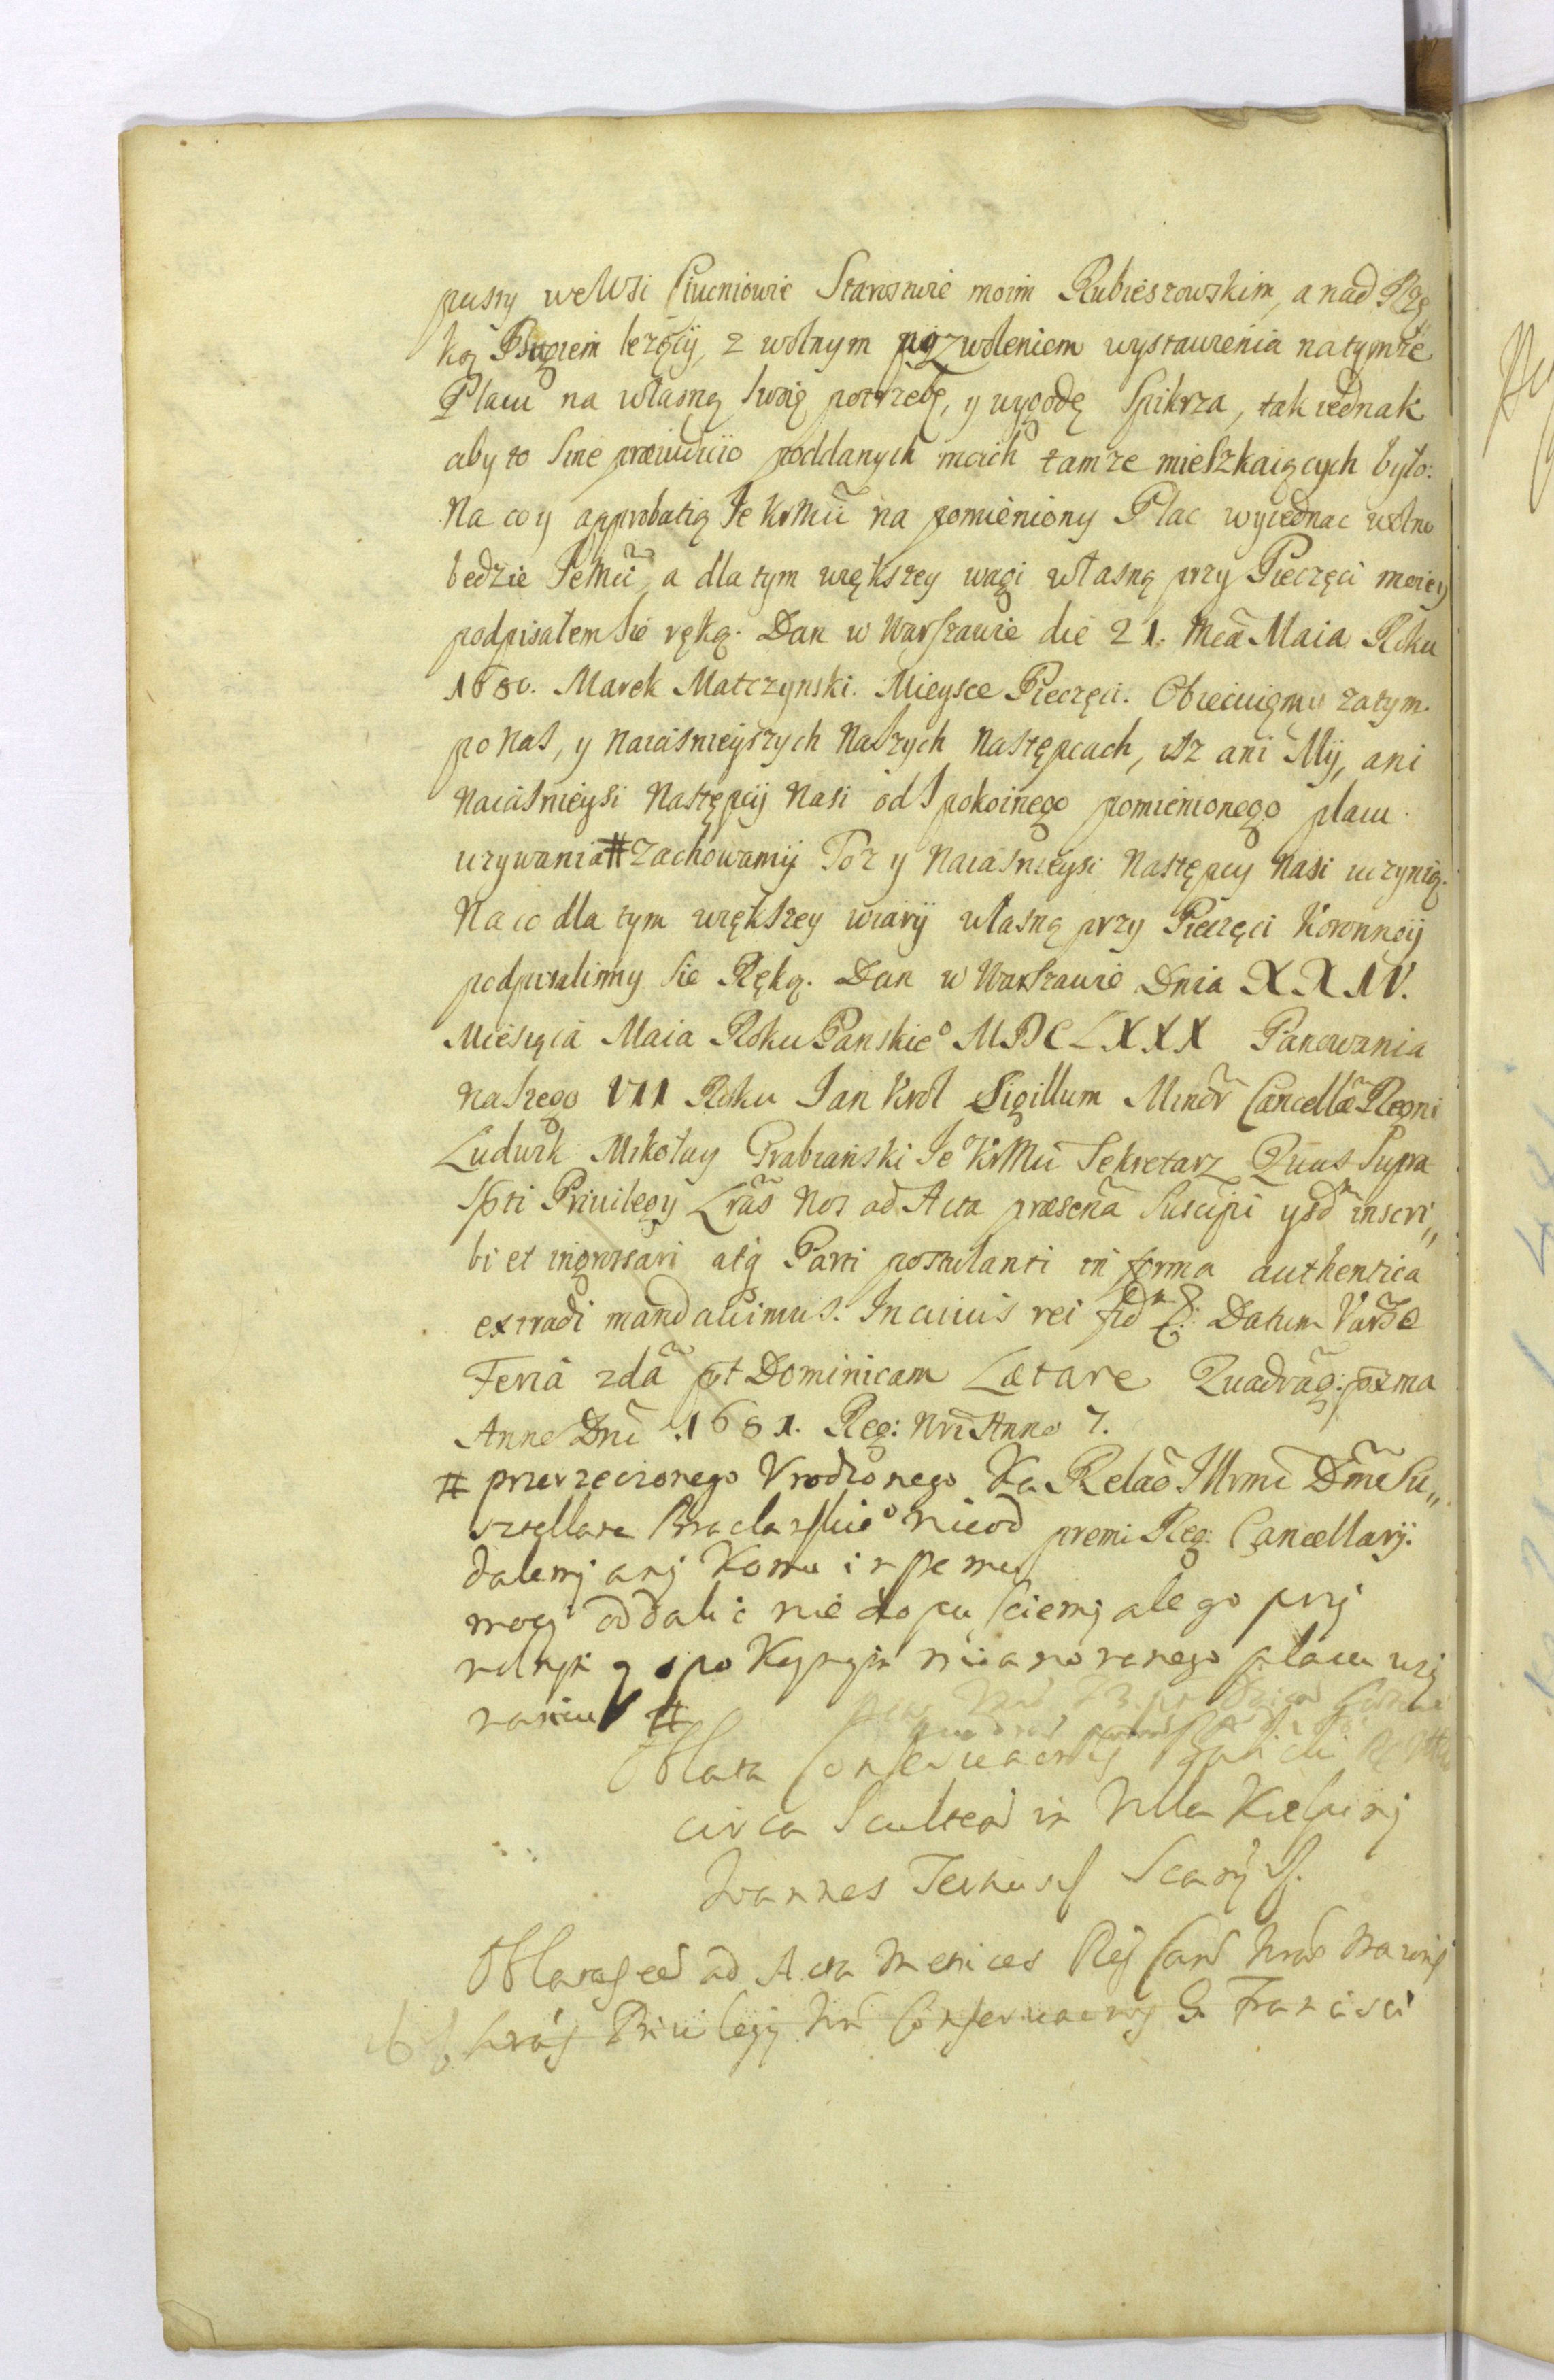 pusty we Wsi Ciucniowie Starostwie moim Rubieszowskim, a nad Rzę
ką Bugiem leżęcÿ, z wolnym pozwoleniem wystawienia na tymże
Placu na własną swoię potrzebę, y wygodę Spikrza, tak iednak
aby to sine præiudicio poddanych moich tamże mieszkaiących było:
Na co y approbatią Je KrMci na pomieniony Plac wyiednac wolno
bedzie JeMci, a dla tym większey wagi własną przy Pieczęci moiey
podpisałem sie ręką. Dan w Warszawie die 21. Mca Maia Roku
1680. Marek Matczynski. Mieysce Pieczęci. Obiecuiąmy zatym
po nas, y naiaśnieyszych naszych następcach, isz ani Mÿ, ani
naiaśnieysi następcÿ nasi od spokoinego pomienionego placu
uzywania # zachowamÿ Toż y naiaśnieysi następcy nasi uczynią.
Na co dla tym większey wiarÿ własną przy Pieczęci Koronneÿ
podpisalismy sie Ręką. Dan w Warszawie Dnia XXIV.
Miesiąca Maia Roku Panskieo MDCLXXX Panowania
naszego VII Roku Jan Krol Sigillum Minor Cancellæ Regni
Ludwik Mikołay Grabianski Je KrMci Sekretarz Quas Supra
spti Priuilegy Lras Nos ad Acta præsena suscipi ysdm inscri„
bi et ingrossari atq Parti postulanti in forma authentica
extradi mandauimus. In cuius rei fidm &: Datum Varsæ
Feria 2da pt Dominicam Lætare Quadrag: pxma
Anno Dni 1681. Reg: nri Anno 7.
# przerzeczonego Vrodzonego Ka Relao Illrmi Dni Su„
sztellana Braclawskieo nieod premi Reg: Cancellarÿ.
dalemj anj Komu inszemu
mocj oddalić nie dopusciemj ale go przj
wolnym y spokoynym mianowanego placu uzj
waniu #
Oblata Conseruaonis
circa Scultea in Villa Kielpinj
Joannes
Oblatas ee ad Acta Metrices Reg Can
Lras Priuilegij Conseruaonis G. Francisci